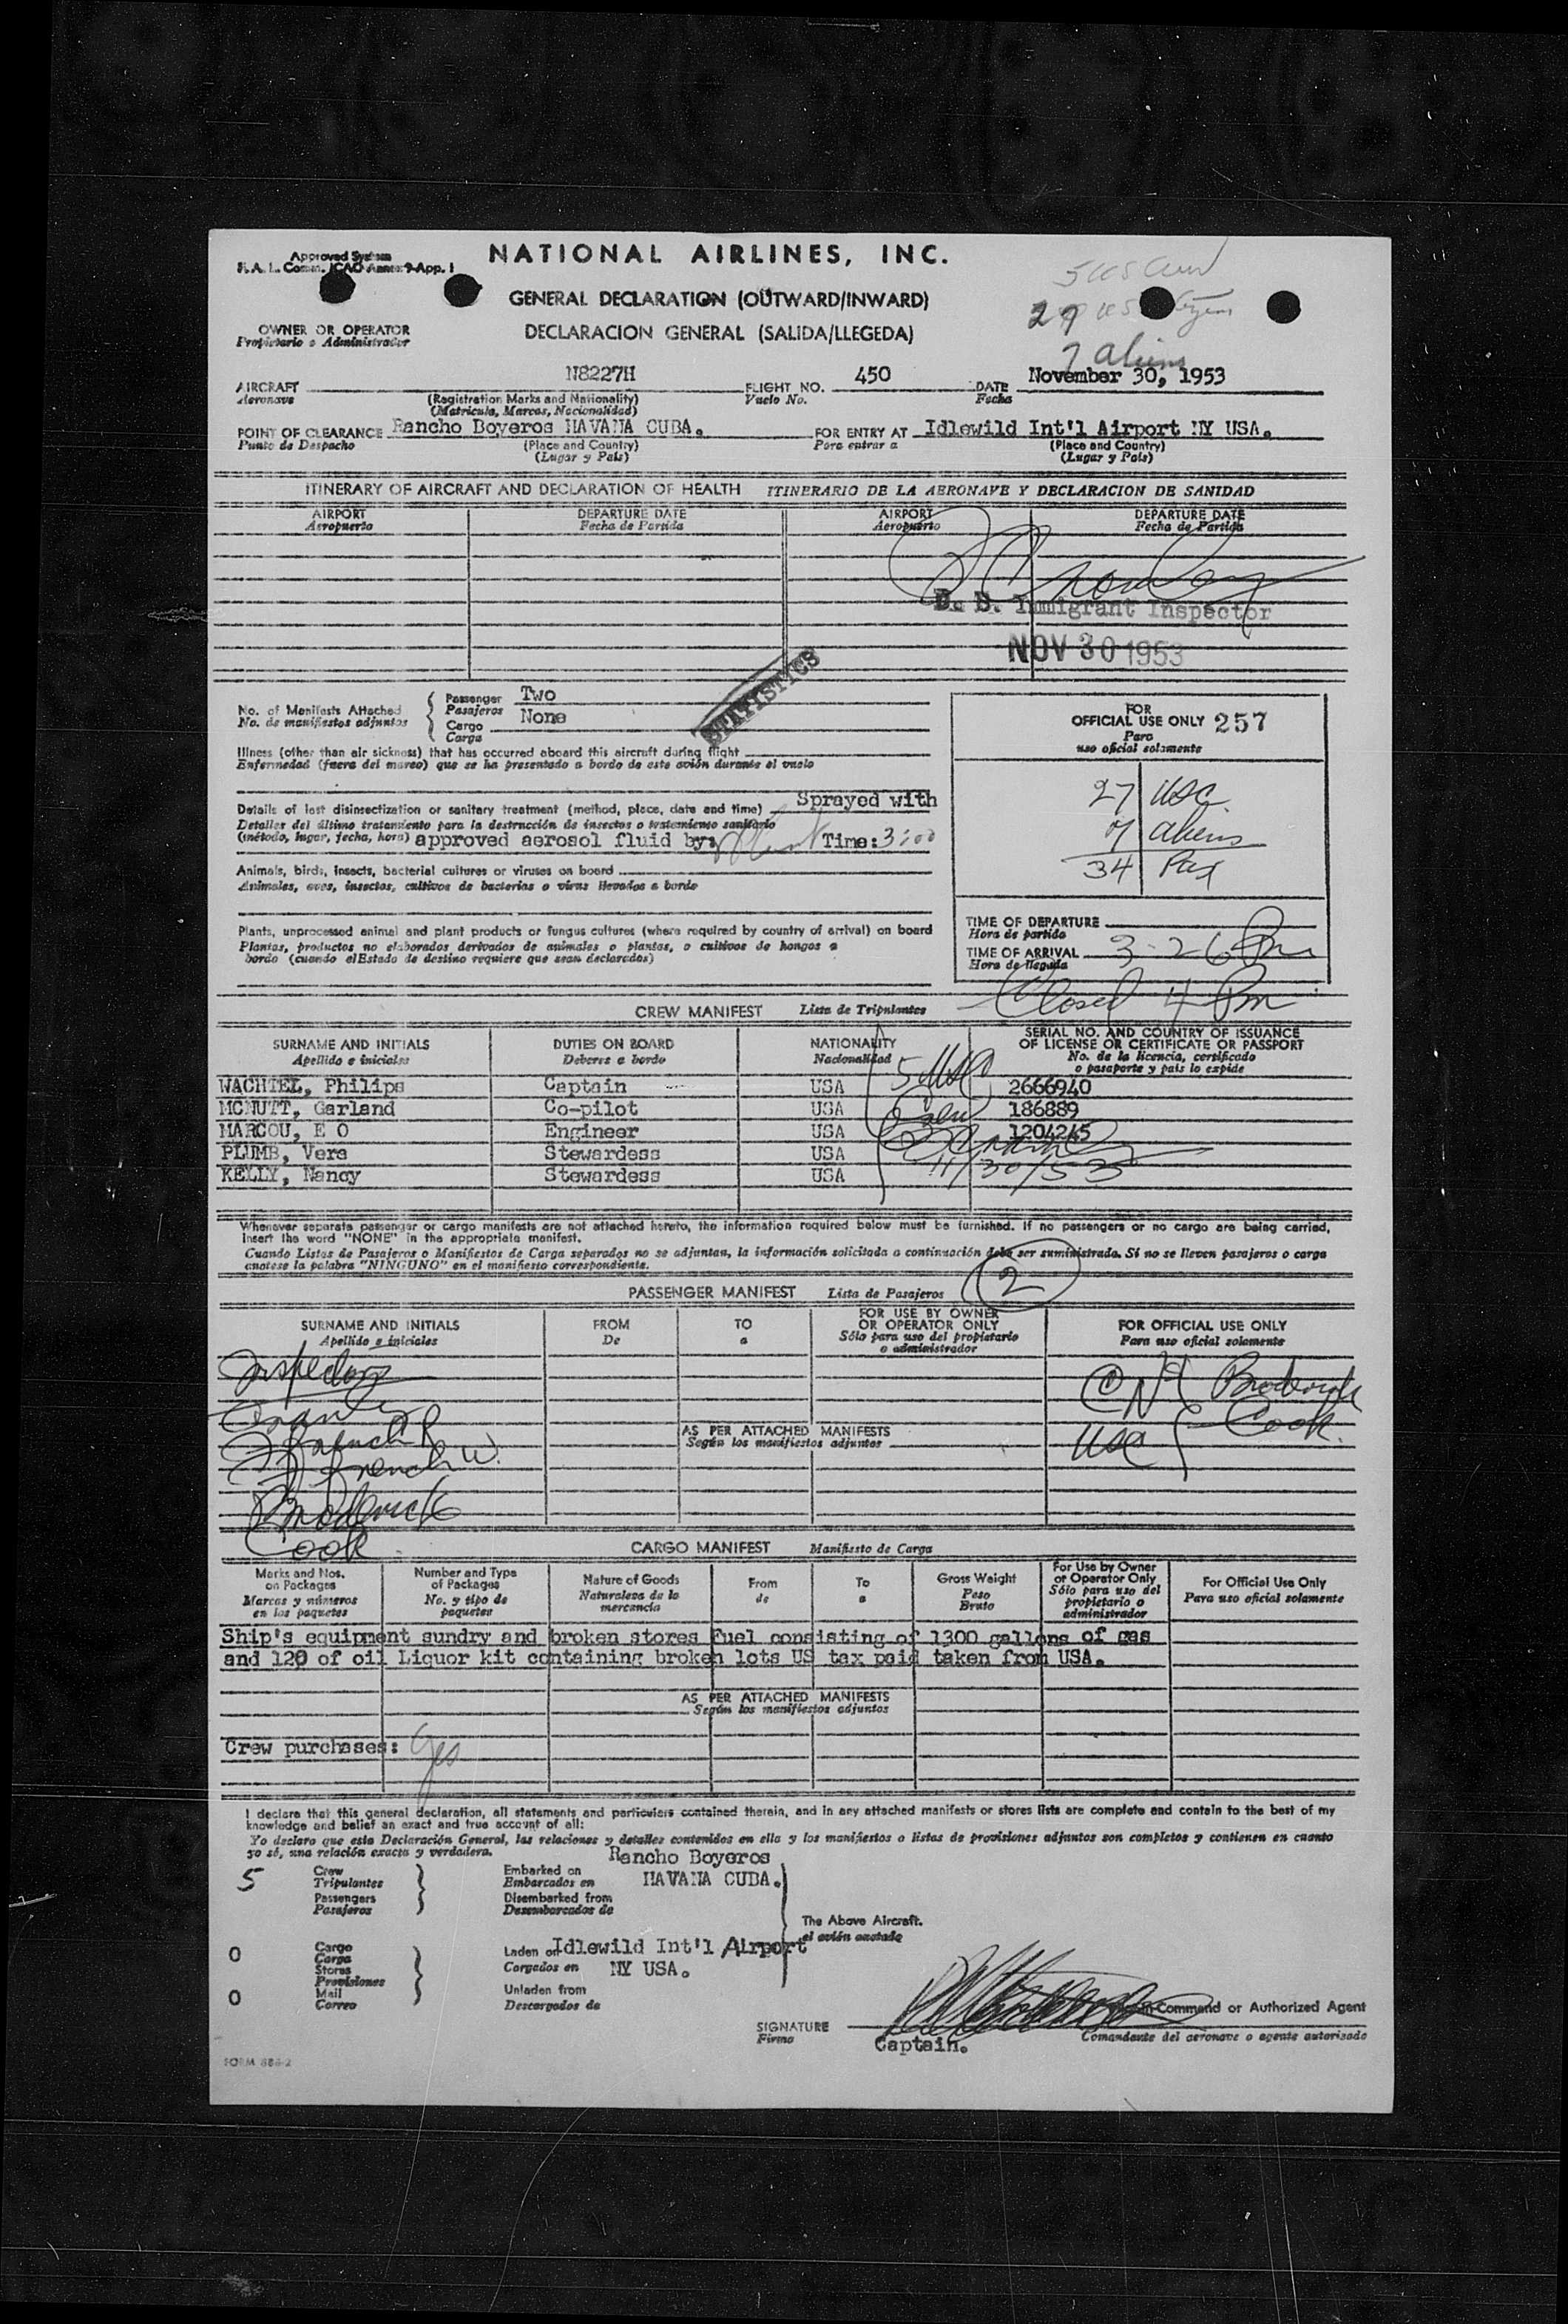 Approved System
F. A. L. Comm. ICAO Annex 9-App. 1
NATIONAL AIRLINES, INC.
GENERAL DECLARATION (OUTWARD/INWARD)
DECLARACION GENERAL (SALIDA/LLEGEDA)
OWNER OR OPERATOR
Propietario o Administrador
5 US Crew
27 US
7 aliens
AIRCRAFT N8227H FLIGHT NO. 450 DATE November 30, 1953
Aeronave (Registration Marks and Nationality) Vuelo No. Fecha
(Matricula, Marcas, Nacionalidad)
POINT OF CLEARANCE Rancho Boyeros HAVANA CUBA. FOR ENTRY AT Idlewild Int'l Airport NY USA.
Punto de Despacho (Place and Country) Para entrar a (Place and Country)
(Lugar y Pais) (Lugar y Pais)
ITINERARY OF AIRCRAFT AND DECLARATION OF HEALTH ITINERARIO DE LA AERONAVE Y DECLARACION DE SANIDAD
AIRPORT DEPARTURE DATE AIRPORT DEPARTURE DATE
Aeropuerto Fecha de Partida Aeropuerto Fecha de Partida
Immigrant Inspector
NOV 30 1953
STATISTICS
No. of Manifests Attached
No. de manifiestos adjuntos
Passenger Two
Pasajeros
Cargo None
Carga
Illness (other than air sickness) that has occurred aboard this aircraft during flight
Enfermedad (fuera del mareo) que se ha presentado a bordo de este avión durante el vuelo
Details of last disinsectization or sanitary treatment (method, place, date and time) Sprayed with
Detalles del último tratamiento para la destrucción de insectos o tratamiento sanitario
(método, lugar, fecha, hora) approved aerosol fluid by: Time: 3:00
Animals, birds, insects, bacterial cultures or viruses on board
Animales, aves, insectos, cultivos de bacterias o virus llevados a bordo
Plants, unprocessed animal and plant products or fungus cultures (where required by country of arrival) on board
Plantas, productos no elaborados derivados de animales o plantas, o cultivos de hongos a
bordo (cuando el Estado de destino requiere que sean declarados)
FOR
OFFICIAL USE ONLY 257
Para
uso oficial solamente
27 USC
7 aliens
34 Pax
TIME OF DEPARTURE
Hora de partida
TIME OF ARRIVAL 3-26 Pm
Hora de llegada
Closed 4 Pm
CREW MANIFEST Lista de Tripulantes
SURNAME AND INITIALS DUTIES ON BOARD NATIONALITY SERIAL NO. AND COUNTRY OF ISSUANCE
OF LICENSE OR CERTIFICATE OR PASSPORT
Apellido e iniciales Deberes a bordo Nacionalidad No. de la licencia, certificado
o pasaporte y pais lo expide
WACHTEL, Philips Captain USA 2666940
MCNUTT, Garland Co-pilot USA 186889
MARCOU, E O Engineer USA 1204245
PLUMB, Vera Stewardess USA
KELLY, Nancy Stewardess USA
5 USC
Crew
11/30/53
Whenever separate passenger or cargo manifests are not attached hereto, the information required below must be furnished. If no passengers or no cargo are being carried,
insert the word "NONE" in the appropriate manifest.
Cuando Listas de Pasajeros o Manifiestos de Carga separados no se adjuntan, la información solicitada a continuación debe ser suministrada. Si no se lleven pasajeros o carga
anotese la palabra "NINGUNO" en el manifiesto correspondiente.
2
PASSENGER MANIFEST Lista de Pasajeros
SURNAME AND INITIALS FROM TO FOR USE BY OWNER
OR OPERATOR ONLY FOR OFFICIAL USE ONLY
Apellido e iniciales De a Sólo para uso del propietario
o administrador Para uso oficial solamente
Inspectors
French R
French W.
Broderick
Cook
AS PER ATTACHED MANIFESTS
Según los manifiestos adjuntos
Broderick
Cook.
USC
CARGO MANIFEST Manifiesto de Carga
Marks and Nos.
on Packages
Marcas y números
en los paquetes
Number and Type
of Packages
No. y tipo de
paquetes
Nature of Goods
Naturaleza de la
mercancia
From
de
To
a
Gross Weight
Peso
Bruto
For Use by Owner
or Operator Only
Sólo para uso del
propietario o
administrador
For Official Use Only
Para uso oficial solamente
Ship's equipment sundry and broken stores Fuel consisting of 1300 gallons of gas
and 120 of oil Liquor kit containing broken lots US tax paid taken from USA.
AS PER ATTACHED MANIFESTS
Según los manifiestos adjuntos
Crew purchases: Yes
I declare that this general declaration, all statements and particulars contained therein, and in any attached manifests or stores lists are complete and contain to the best of my
knowledge and belief an exact and true account of all:
Yo declaro que esta Declaración General, las relaciones y detalles contenidos en ella y los manifiestos o listas de provisiones adjuntos son completos y contienen en cuanto
yo sé, una relación exacta y verdadera.
5 Crew
Tripulantes
Passengers
Pasajeros
Embarked on
Embarcados en
Rancho Boyeros
HAVANA CUBA.
Disembarked from
Desembarcados de
The Above Aircraft.
el avión anotado
0 Cargo
Carga
Stores
Provisiones
0 Mail
Correo
Laden on Idlewild Int'l Airport
Cargados en NY USA.
Unladen from
Descargados de
SIGNATURE in-Command or Authorized Agent
Firma Comandante del aeronave o agente autorizado
Captain.
FORM 886-2